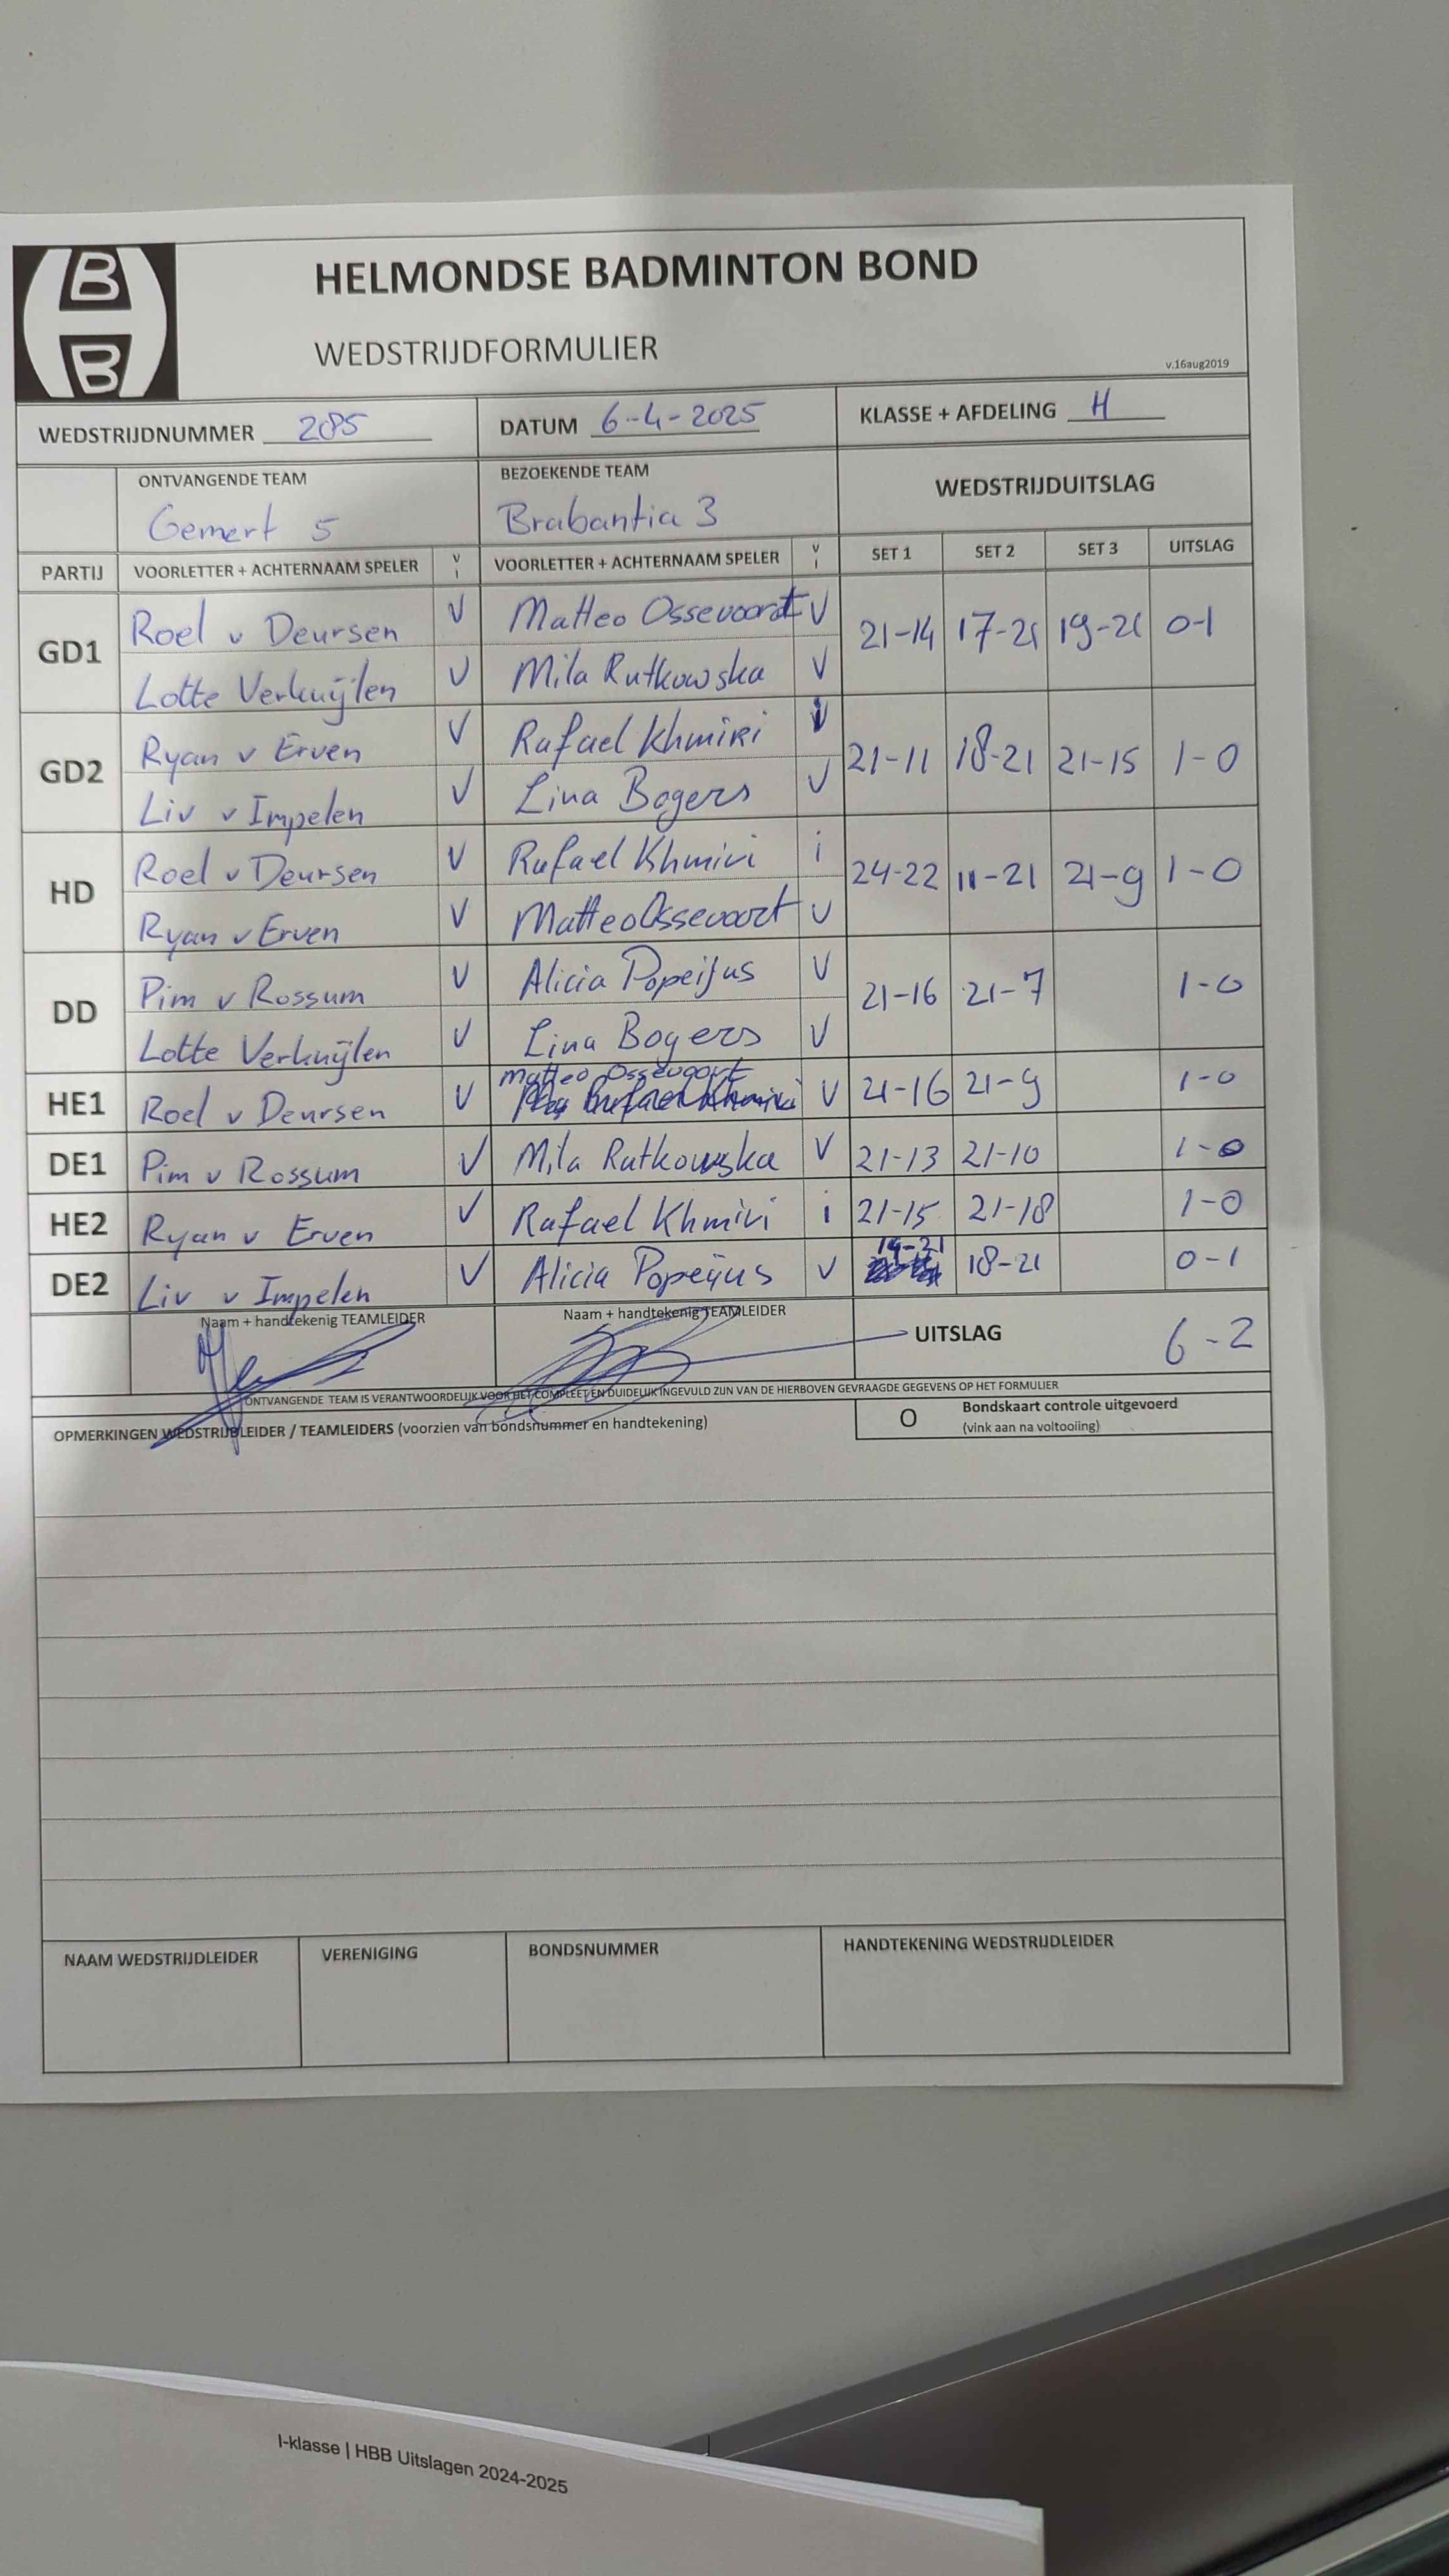 B
B
HELMONDSE BADMINTON BOND
WEDSTRIJDFORMULIER
v.16aug2019
WEDSTRIJDNUMMER 285 DATUM 6-4-2025 KLASSE + AFDELING H
ONTVANGENDE TEAM BEZOEKENDE TEAM WEDSTRIJDUITSLAG
Gemert 5 Brabantia 3
PARTIJ VOORLETTER + ACHTERNAAM SPELER V I VOORLETTER + ACHTERNAAM SPELER V I SET 1 SET 2 SET 3 UITSLAG
GD1 Roel v Deursen V Matteo Ossevoort V 21-14 17-21 19-21 0-1
Lotte Verkuijlen V Mila Rutkowska V
GD2 Ryan v Erven V Rafael Khmiri 21-11 18-21 21-15 1-0
Liv v Impelen V Lina Bogers V
HD Roel v Deursen V Rafael Khmiri i 24-22 11-21 21-9 1-0
Ryan v Erven V Matteo Ossevoort V
DD Pim v Rossum V Alicia Popeijus V 21-16 21-7 1-0
Lotte Verkuijlen V Lina Bogers V
HE1 Roel v Deursen V Matteo Ossevoort V 21-16 21-9 1-0
DE1 Pim v Rossum V Mila Rutkowska V 21-13 21-10 1-0
HE2 Ryan v Erven V Rafael Khmiri i 21-15 21-18 1-0
DE2 Liv v Impelen V Alicia Popeijus V 19-21 18-21 0-1
Naam + handtekenig TEAMLEIDER Naam + handtekenig TEAMLEIDER UITSLAG 6-2
ONTVANGENDE TEAM IS VERANTWOORDELIJK VOOR HET COMPLEET EN DUIDELIJK INGEVULD ZIJN VAN DE HIERBOVEN GEVRAAGDE GEGEVENS OP HET FORMULIER
OPMERKINGEN WEDSTRIJDLEIDER / TEAMLEIDERS (voorzien van bondsnummer en handtekening) O Bondskaart controle uitgevoerd
(vink aan na voltooiing)
NAAM WEDSTRIJDLEIDER VERENIGING BONDSNUMMER HANDTEKENING WEDSTRIJDLEIDER
I-klasse | HBB Uitslagen 2024-2025